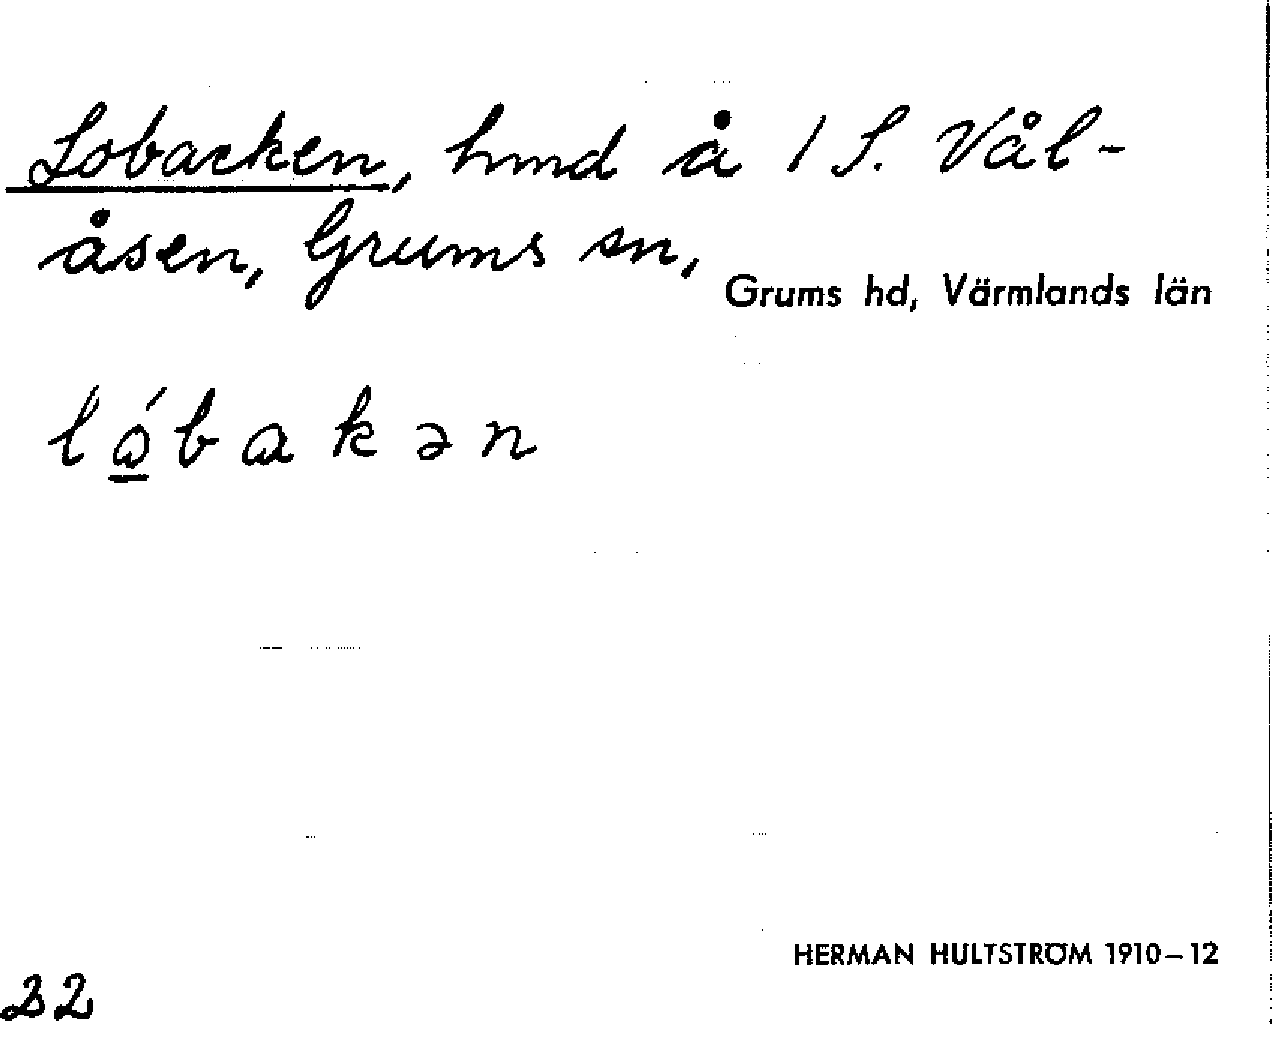 Lobacken, hmd å 1 S. Vål-
åsen, Grums sn,
Grums hd, Värmlands län
lώ̲bakən
HERMAN HULTSTRÖM 1910–12
22